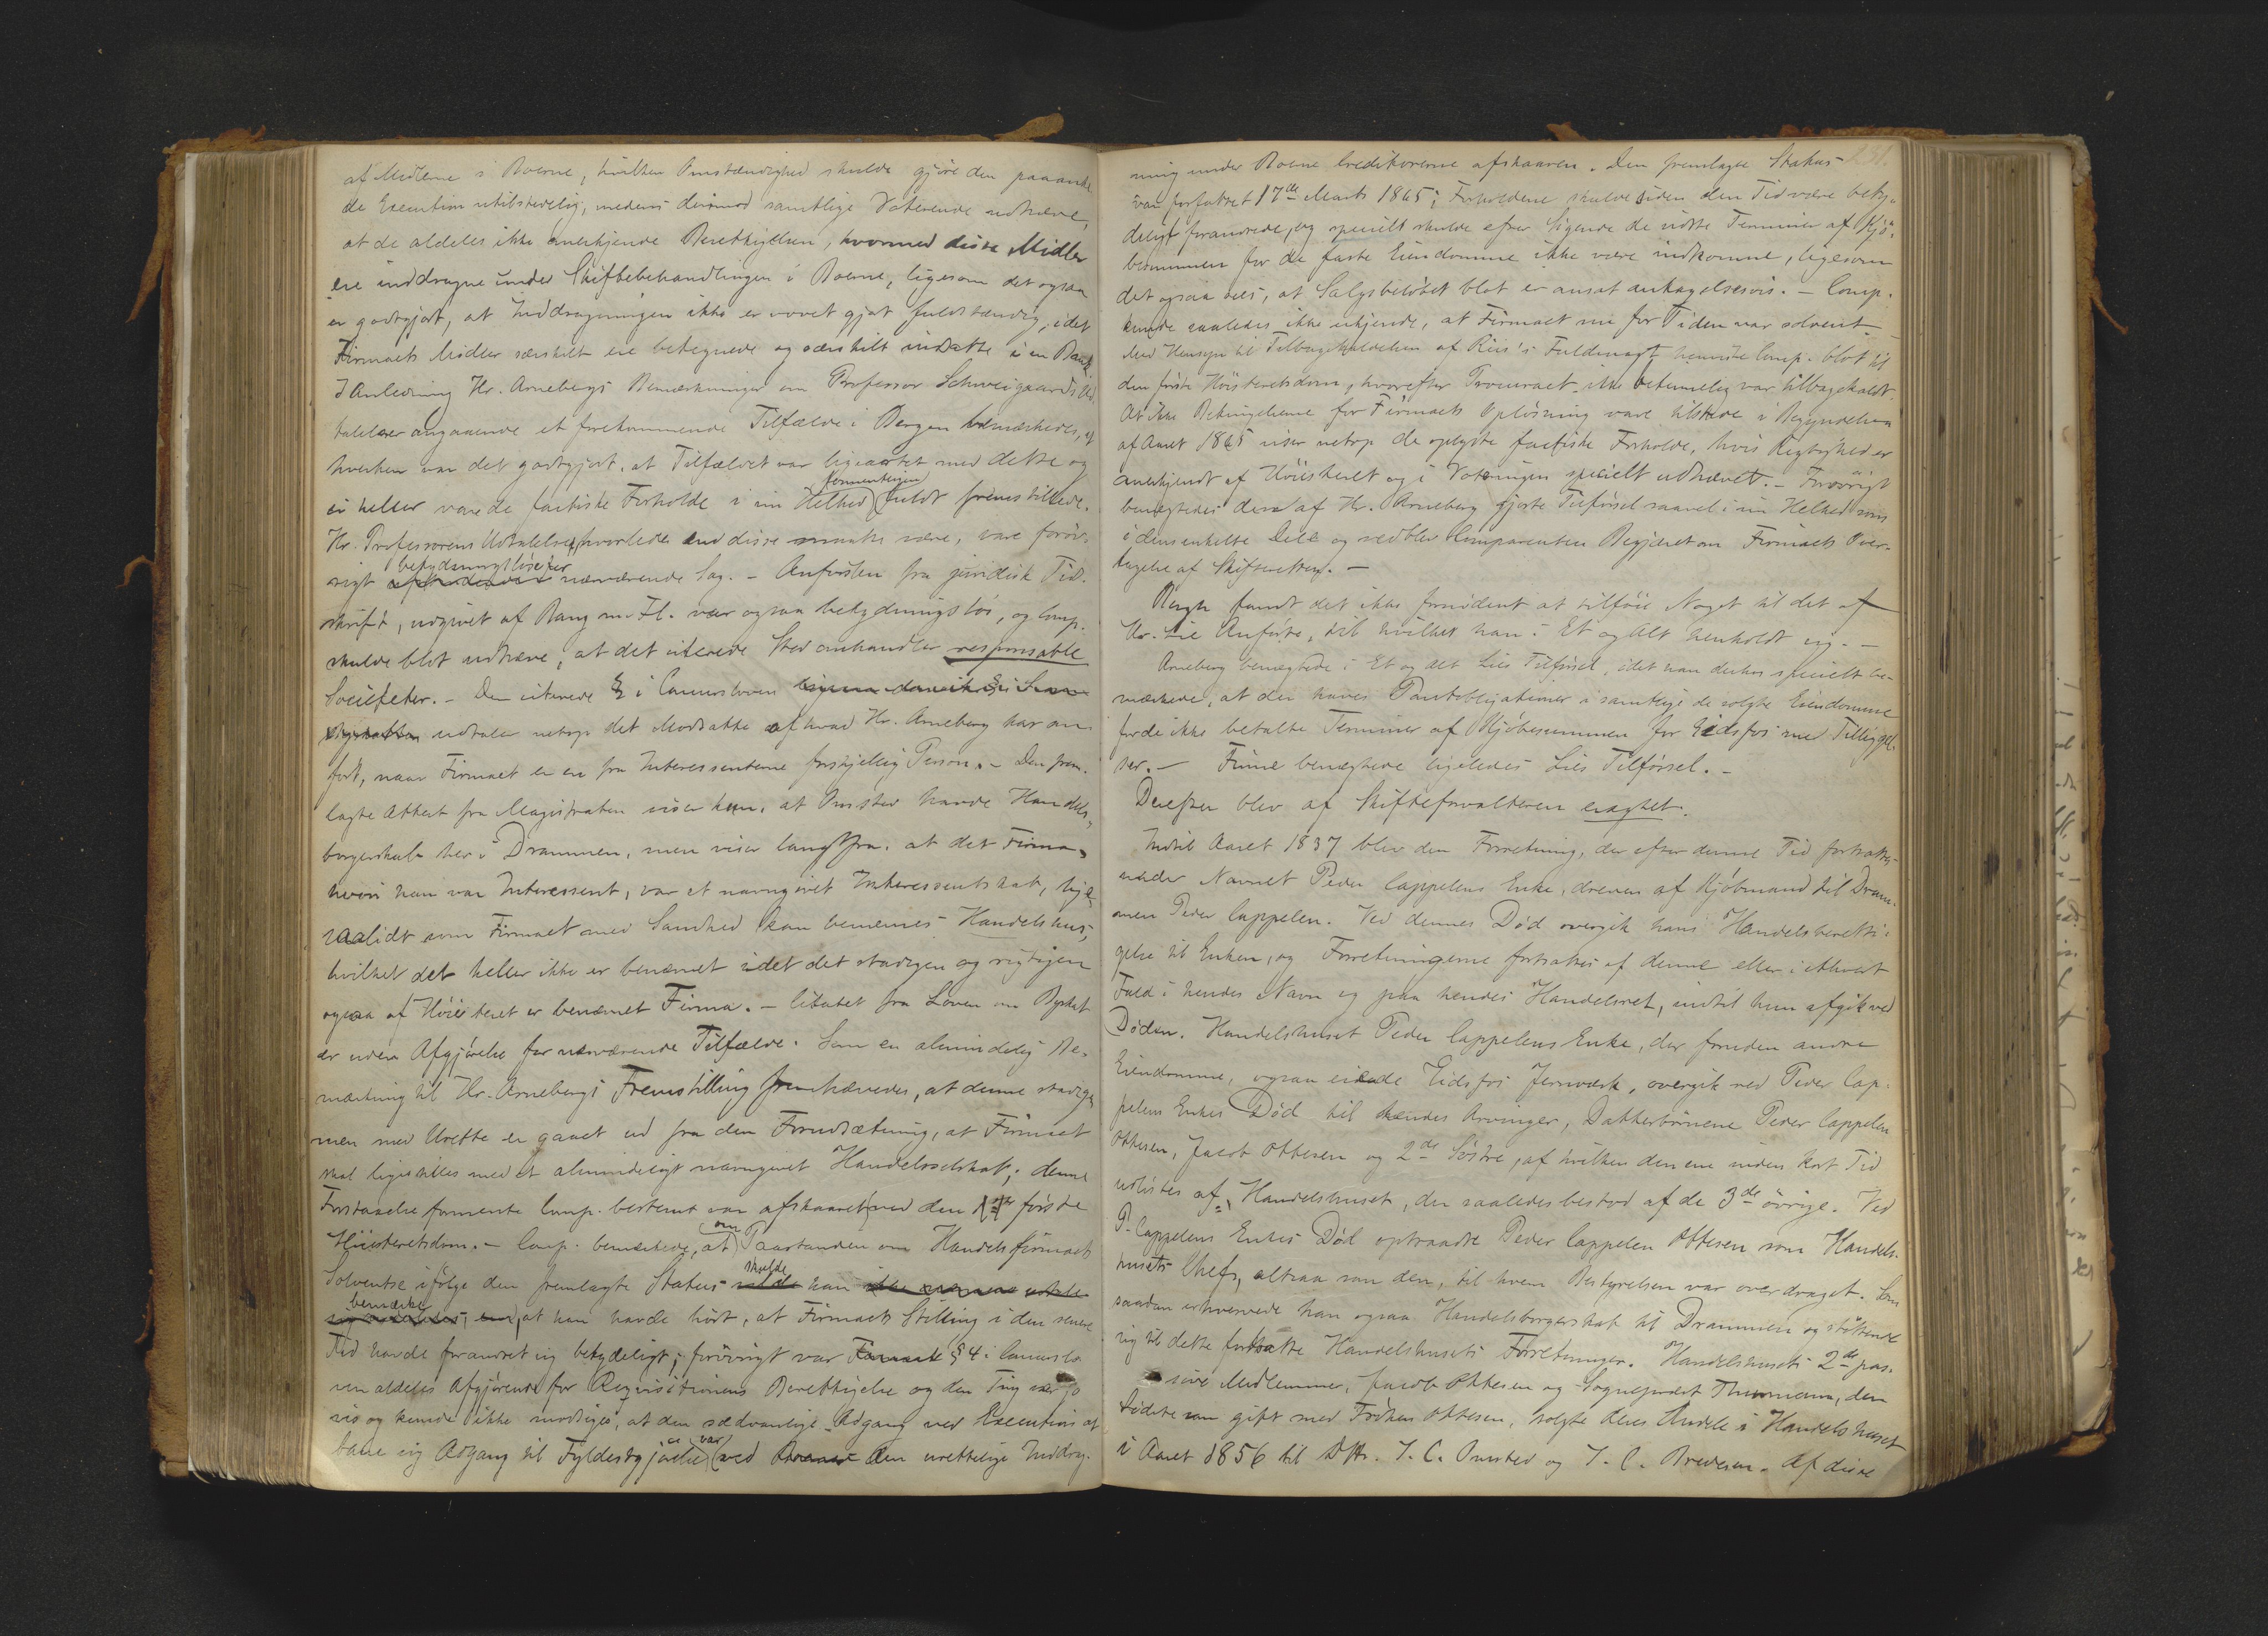 af Midlerne i Boerne, hvilken Omstændighed skulde gjöre den paaank-
de Execution utilstedelig, medens derimod samtlige Voterende udhæve,
at de aldeles ikke anerkjende Berettigelsen, hvormed disse Midler
ere inddragne under Skiftebehandlingen i Boerne, ligesom det ogsaa
er godtgjort, at Inddragningen ikke er vovet gjort fuldstændig, idet
Firmaets Midler særskilt ere betegnede og særskilt indsatte i en Bank
I Anledning Hr. Arnebergs Bemærkninger om Professor Schweigaards Ud-
talelser angaaende et forekommende Tilfælde i Bergen bemærkedes, at
hverken var det godtgjort, at Tilfældet var ligeartet med dette og
ei heller vare de factiske Forholde i sin Helhed formentligen fuldt fremstillede.
Hr. Professorens Udtalelser, hvorledes end disse maatte være, vare foröv-
rigt betydningslöse for nærværende Sag. - Anförslen fra juridisk Tid-
skrift, udgivet af Bang m. Fl. var ogsaa betydningslös, og Comp.
skulde blot udhæve, at det citerede Sted omhandler responsable
Societeter. - Den citerede § i Concursloven
udtaler netop det Modsatte af hvad Hr. Arneberg har an-
fört, naar Firmaet er en fra Interessenterne forskjellig Person. - Den frem-
lagte Attest fra Magistraten viser kun, at Omsted havde Handels-
borgerskab her i Drammen, men viser langtfra, at det Firma,
hvori han var Interessent, var et navngivet Interessentskab, lige
saalidt som Firmaet med Sandhed kan benævnes Handelshus,
hvilket det heller ikke er benævnt idet det stadigen og rigtigen
ogsaa af Höiesteret er benævnt Firma. - Citatet fra Loven om Byskat
er uden Afgjörelse for nærværende Tilfælde. Som en almindelig Be-
mærkning til Hr. Arnebergs Fremstilling fremhævedes, at denne stadigen
men med Urette er gaaet ud fra den Forudsætning, at Firmaet
skal ligestilles med et almindeligt navngivet Handelsselskab; denne
Forstaaelse formente Comp. bestemt var afskaaret ved den förste
Höiesteretsdom. - Comp. bemærkede, at om Paastanden om Handelsfirmaets
Solventse ifölge den fremlagte Status skulde han
bemærke, at han havde hört, at Firmaets Stilling i den senere
Tid havde forandret sig betydeligt; forövrigt var § 4 i Concurslo-
ven aldeles afgjörende for Reqvisitionens Berettigelse og den Ting var jo
vis og kunde ikke modsiges, at den sædvanlige Adgang ved Execution at
bane sig Adgang til Fyldestgjörelse var ved den urettelige Inddrag-
ning under Boene Creditorerne afskaaren. Den fremlagte Status
var forfattet 17de Marts 1865; Forholdene skulde siden den Tid være bety-
deligt forandrede, og specielt skulde efter Sigende de sidste Terminer af Kjö-
besummen for de faste Eiendomme ikke være indkomne, ligesom
det ogsaa sees, at Salgsbelöbet blot er ansat antagelsesvis. - Comp.
kunde saaledes ikke erkjende, at Firmaet nu for Tiden var solvent.
Med Hensyn til Tilbageholdelsen af Riis's Fuldmagt henviste Comp. blot til
den förste Höiesteretsdom, hvorefter Procuraet ikke betimelig var tilbagekaldt.
At ikke Betingelserne for Firmaets Oplösning vare tilstede i Begyndelsen
af Aaret 1865 viser netop de oplyste factiske Forholde, hvis Rigtighed er
anerkjendt af Höiesteret og i Voteringen specielt udhævet. - Forövrigt
benægtedes den af Hr. Arneberg gjorte Tilförsel saavel i sin Helhed som
i dens enkelte Dele og vedblev Comparenten Begjæret om Firmaets Over-
tagelse af Skifteretten. -
Bergh fandt det ikke fornödent at tilföie Noget til det af
Hr. Lie Anförte, til hvilket han i Et og Alt henholdt sig. -
Arneberg benægtede i Et og Alt Lies Tilförsel, idet han derhos specielt be-
mærkede, at der haves Pantobligationer i samtlige de solgte Eiendomme
for de ikke betalte Terminer af Kjöbesummen for Eidsfos med Tilliggel-
ser. - Finne benægtede ligeledes Lies Tilförsel. -
Derefter blev af Skifteforvalteren eragtet.
Indtil Aaret 1837 blev den Forretning, der efter denne Tid fortsattes
under Navnet Peder Cappelens Enke, dreven af Kjöbmand til Dram-
men Peder Cappelen. Ved dennes Död overgik hans Handelsberetti-
gelse til Enken, og Forretningerne fortsattes af denne eller i ethvert
Fald i hendes Navn og paa hendes Handelsret, indtil hun afgik ved
Döden. Handelshuset Peder Cappelens Enke, der foruden andre
Eiendomme, ogsaa eiede Eidsfos Jernværk, overgik ved Peder Cap-
pelens Enkes Död til hendes Arvinger, Datterbörnene Peder Cappelen
Ottesen, Jacob Ottesen og 2de Söstre, af hvilken den ene inden kort Tid
udlöstes af Handelshuset, der saaledes bestod af de 3de övrige. Ved
P. Cappelens Enkes Död optraadte Peder Cappelen Ottesen som Handels-
husets Chef, altsaa som den, til hvem Bestyrelsen var overdraget. Som
saadan erhvervede han ogsaa Handelsborgerskab til Drammen og stöttende
sig til dette fortsatte Handelshusets Forretninger. Handelshusets 2de pas-
sive Medlemmer, Jacob Ottesen og Sognepræst Thurmann, den
sidste som gift med Fröken Ottesen, solgte deres Andele i Handelshuset
i Aaret 1856 til DHr. J. C. Omsted og J. C. Bredesen. Af disse